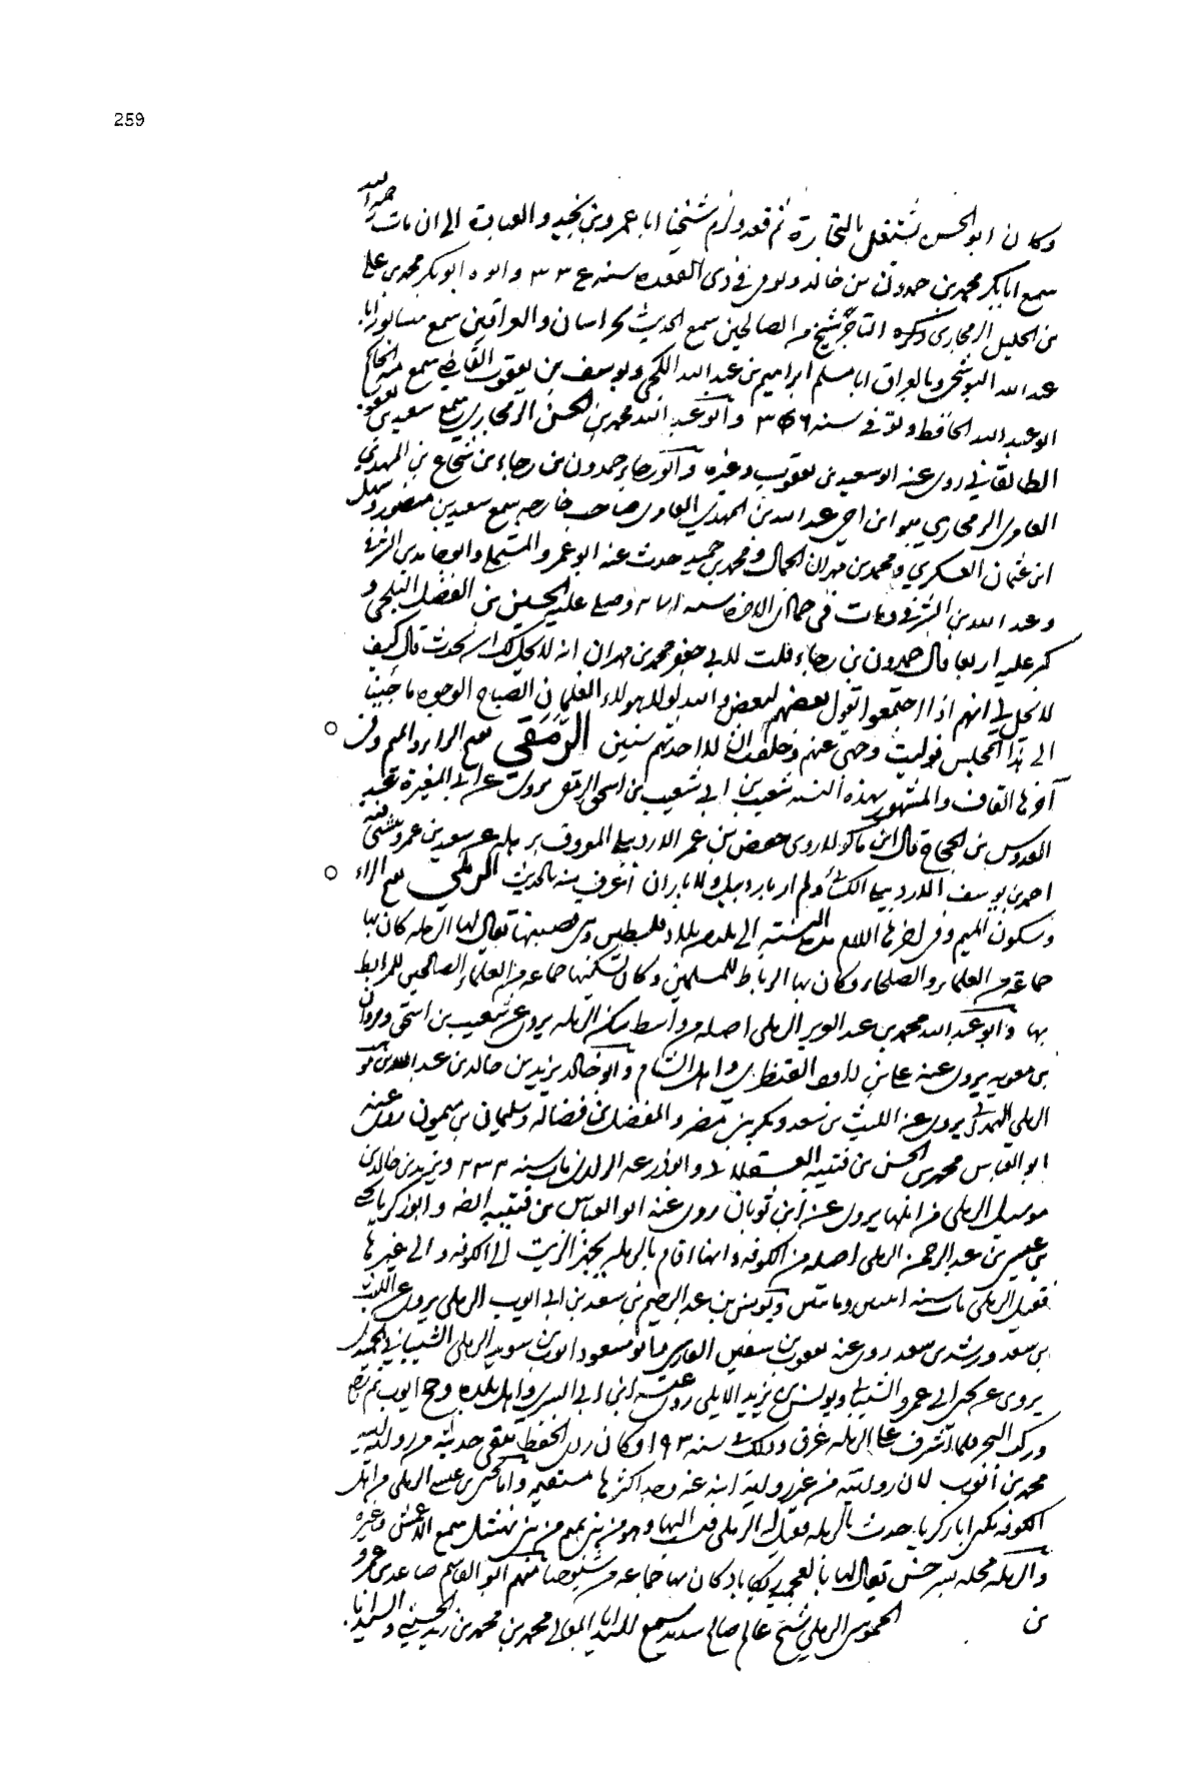 259
وكان ابو الحسن يشتغل بالتجارة ثم قعد ولزم شيخنا ابا عمرو بن نجيد والعبادة الى ان مات رحمه الله
سمع ابا بكر محمد بن حمدون بن خالد وتوفى في ذى القعدة سنة وابوه ابو بكر محمد بن على
بن الخليل الرمجارى ذكره التاجر شيخ من الصالحين سمع الحديث بخراسان والعراقين سمع بنيسابور ابا
عبد الله البوشنجى وبالعراق ابا مسلم ابراهيم بن عبد الله الكجى ويوسف بن يعقوب القاضى سمع منه الحاكم
ابو عبد الله الحافظ وتوفى في سنة وابو عبد الله محمد بن الحسن الرمجارى سمع سعيد بن يعقوب
الطالقاني روى عنه ابو سعيد بن يعقوب وغيره وابو رجاء حمدون بن رجاء بن شجاع بن المهدي
العاوى الرمجاري هو ابن اخي عبد الله بن المهدي العاوى صاحب خارجه سمع سعيد بن منصور وسهل
ابن عثمان العسكري ومحمد بن مهران الجمال ومحمد بن حميد حدث عنه ابو عمرو المستملي وابو حامد بن الشرقى
وعبد الله بن الشرقى ومات في جمادى الاخرة سنة وصلى عليه الحسين بن الفضل البجلى و
كبر عليه اربعا قال حمدون بن رجاء قلت لابي جعفر محمد بن مهران انه لا يحل لك ان تحدث قال كيف
لا يحل لي انهم اذا اجتمعوا تقول بعضهم لبعض والله لولا هولاء الغلمان الصباح الوجوه ما جئنا
الى هذا المجلس فوليت وجهى عنهم وحلفت ان لا احدثهم سنين الرمقى بفتح الراء والميم وفى
آخرها القاف والمشهور بهذه النسبة شعيب بن ابي شعيب بن اسحق الرمقى يروى عن ابي المغيرة عبد
القدوس بن الحجاج قال ابن ماكولا روى حفص بن عمر الاردبيلى المعروف عن سعيد بن عمرو
احمد بن يوسف الاردبيلى ولم ار باردبيل ولا بايران اعرف منه بالحديث الرملي بفتح الراء
وسكون الميم وفى اخرها اللام هذه النسبة الى بلدة من بلاد فلسطين وهى قصبتها يقال لها الرملة كان بها
جماعة من العلماء والصلحاء وكان بها الرباط للمسلمين وكان يسكنها جماعة من العلماء الصالحين للمرابطة
بها وابو عبد الله محمد بن عبد العزيز الرملى اصله من واسط سكن الرملة يروى عن شعيب بن اسحق ومروان
بن معوية يروى عنه واهل الشام وابو خالد يزيد بن خالد بن عبد الله بن موهب
الرملى الهمداني يروى عن الليث بن سعد وبكر بن مضر والمفضل بن فضالة وسليمان بن ميمون روى عنه
ابو العباس محمد بن الحسن بن قتيبة العسقلانى وابو زرعة الرازى مات سنة ويزيد بن خالد بن
مرسيل الرملى من اهلها يروى عن ابن ثوبان روى عنه ابو العباس بن قتيبة ايضا وابو زكريا يحيى
بن عيسى بن عبد الرحمن الرملى اصله من الكوفة وانما اقام بالرملة يجهز الزيت الى الكوفة والى غيرها
فقيل الرملى مات سنة احدى ومائتين ويونس بن عبد الرحيم بن سعد بن ابي ايوب الرملى يروى عن الليث
بن سعد ورشدين سعد روى عنه يعقوب بن سفين الفارسى وابو مسعود ايوب بن سويد الرملى الشيباني الحميرى
يروى عن يحيى ابى عمرو الشيباني ويونس بن يزيد الايلى روى عنه ابن ابي السرى واهل بلده وحج ايوب ثم رجع
وركب البحر فلما اشرف على الرملة غرق وذلك في سنة ١٩٣ وكان ردى الحفظ يتقى حديثه من رواية ابنه
محمد بن ايوب لان روايته من غير رواية ابنه عنه وجد اكثرها مستقيم واما يحيى بن عيسى الرملى من اهل
الكوفة يكنى ابا زكريا حدث بالرملة فقيل له الرملى فنسب اليها وهو من بني تميم من بني نهشل سمع الاعمش وغيره
والرملة محلة بسرخس يقال لها بالعجمية ريكاباد كان بها جماعة من شيوخنا منهم ابو القاسم صاعد بن عمرو
بن الحموى الرملى شيخ عالم صالح سديد سمع السيد ابا المعالى محمد بن محمد بن زيد الحسيني والسيد ابا